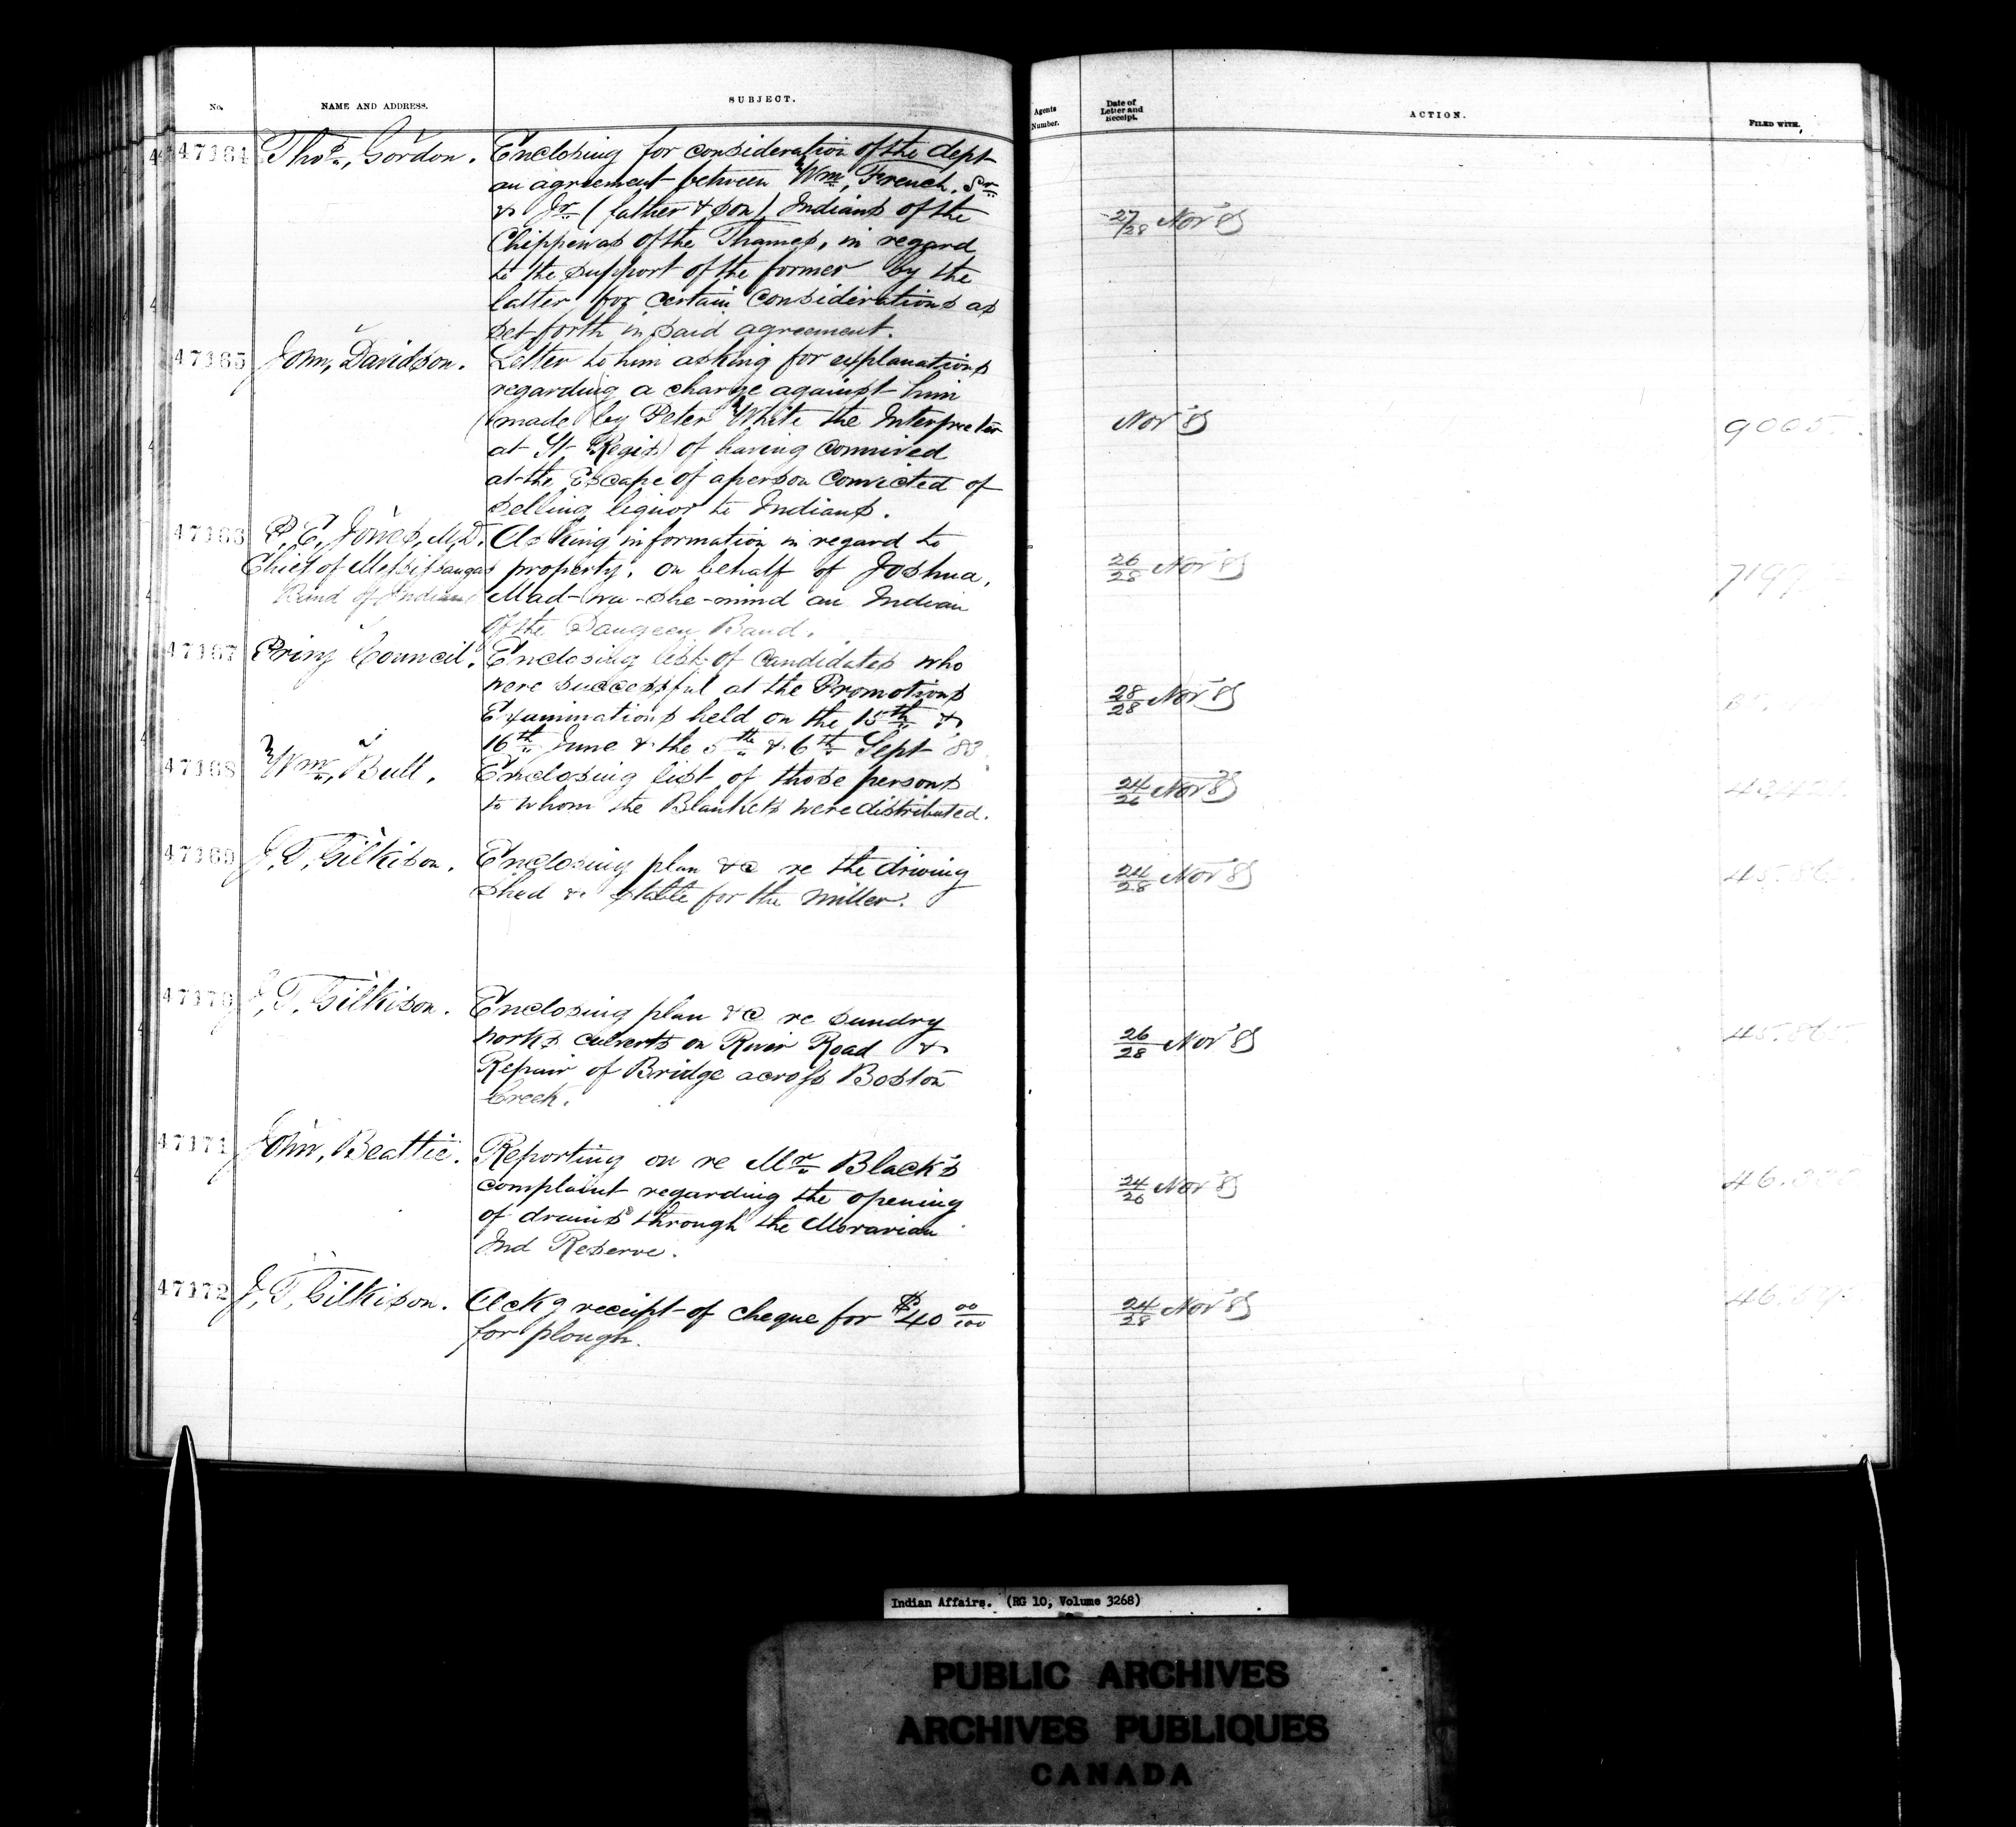 No.
NAME AND ADDRESS.
SUBJECT.
Agents
Number.
Date of
Letter and
Receipt.
ACTION.
FILED WITH.
47164 Thos., Gordon. Enclosing for consideration of the dept
an agreement between Wm, French. Sr
& Jr. (father & son) Indians of the
Chippewas of the Thames, in regard
to the support of the former by the
latter for certain considerations as
set forth in said agreement.
27/28 Nov
47165 John, Davidson. Letter to him asking for explanations
regarding a charge against him
(made by Peter White the Interpreter
at St Regis) of having connived
at the Escape of a person convicted of
selling liquor to Indians.
Nov 9005
47166 P. E. Jones, M.D. Asking information in regard to
Chief of Mississaugas property. on behalf of Joshua,
Band of Indians Mad-wa-she-mind an Indian
of the Saugeen Band.
26/28 Nov
47167 Privy Council. Enclosing list of candidates who
were successful at the Promotions
Examinations held on the 15th &
16th June & the 5th & 6th Sept 83.
28/28 Nov
47168 Wm, Bull. Enclosing list of those persons
to whom the Blankets were distributed.
24/26 Nov
47169 J, T, Gilkison. Enclosing plan &c re the driving
shed & stable for the miller.
24/28 Nov
47170 J, T, Gilkison. Enclosing plan &c re sundry
works culverts on River Road &
Repair of Bridge across Boston
Creek.
26/28 Nov
47171 John, Beattie. Reporting on re Mr. Black's
complaint regarding the opening
of drains through the Moravian
Ind Reserve.
24/26 Nov
47172 J, T, Gilkison. Ackg receipt of cheque for $40 00/100
for plough.
24/28 Nov
Indian Affairs. (RG 10, Volume 3268)
PUBLIC ARCHIVES
ARCHIVES PUBLIQUES
CANADA